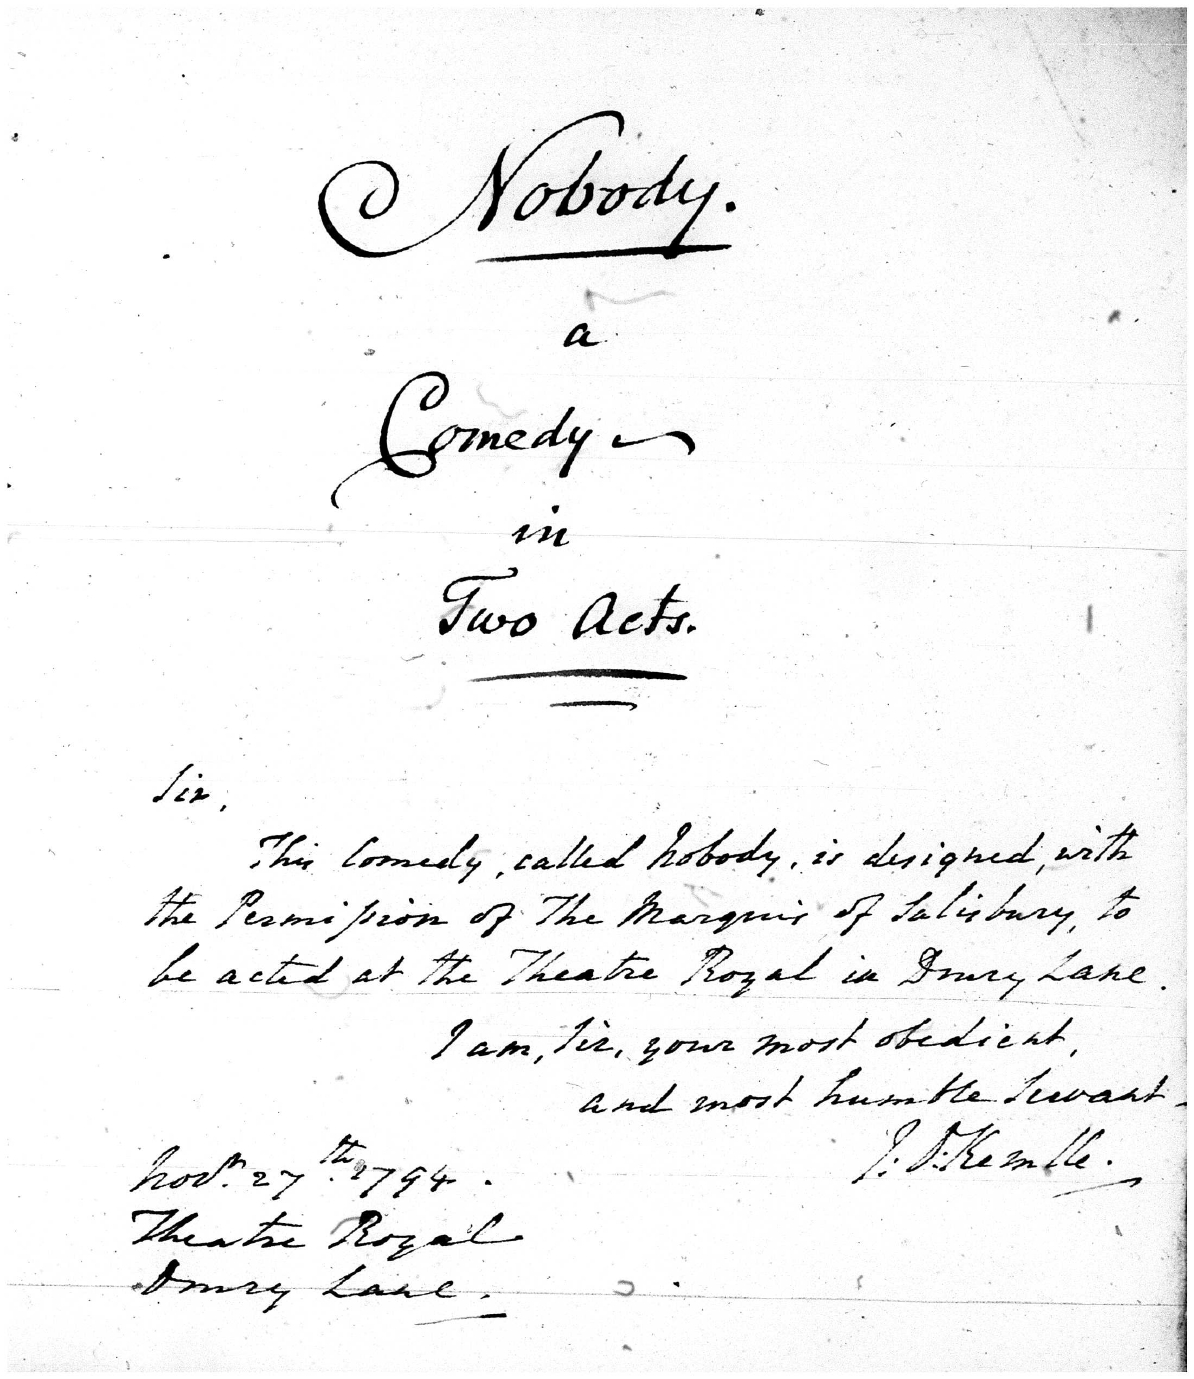 Nobody.
a
Comedy
in
Two Acts.
Sir,
This Comedy, called Nobody, is designed, with
the Permission of The Marquis of Salisbury, to
be acted at the Theatre Royal in Drury Lane.
I am, Sir, your most obedient,
and most humble Servant
J: P: Kemble.
Novr. 27th. 1794.
Theatre Royal
Drury Lane.